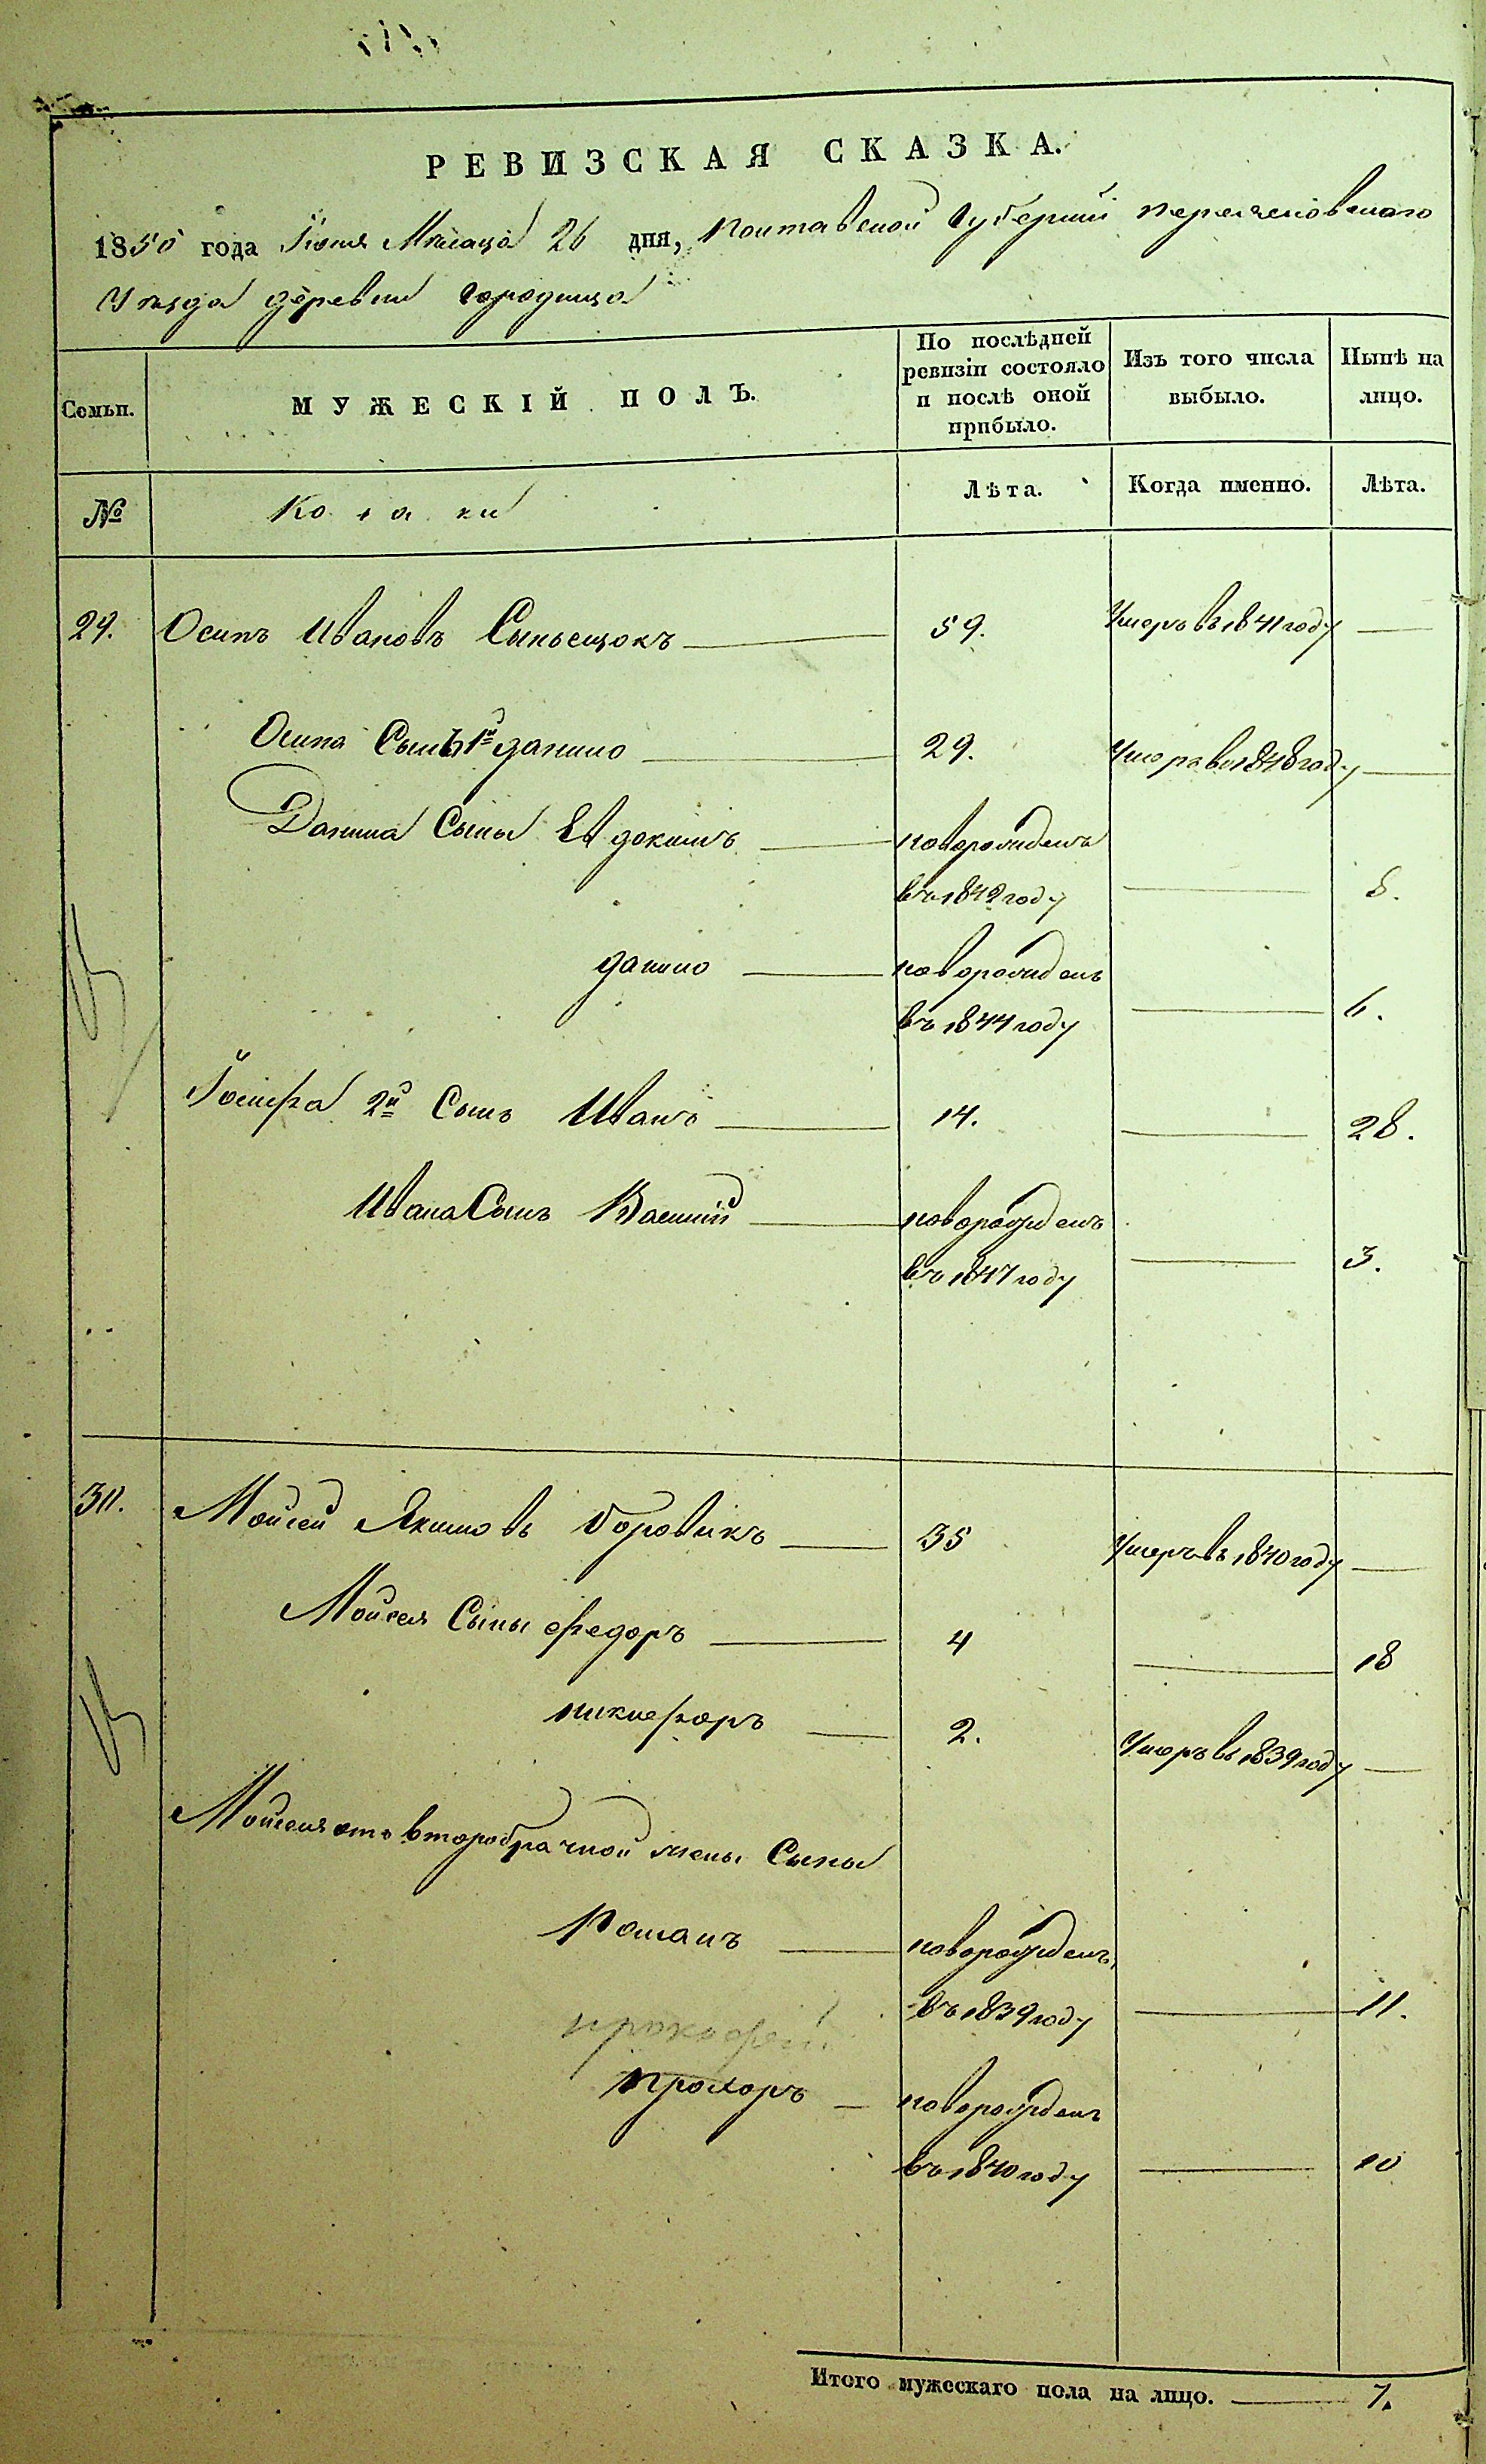 РЕВИЗСКАЯ СКАЗКА.
1850 года Іюня Мѣсяца 26 дня, Полтавской Губерніи
Уѣзда деревни Городища
Семьи.
МУЖЕСКІЙ ПОЛЪ.
По послѣдней ревизіи состояло и послѣ оной прибыло.
Изъ того числа выбыло.
Нынѣ на лицо.
№
Козаки
Лѣта.
Когда именно.
Лѣта.
29. Осипъ Ивановъ 59. Умеръ въ 1841 году
Осипа Сынъ 1й Данило 29. Умеръ въ 1848 году
Данила Сыны Евдокимъ новорожденъ
въ 1842 году 8.
Данило новорожденъ
въ 1844 году 6.
Іосифа 2й Сынъ Иванъ 14. 28.
Ивана Сынъ Василій новорожденъ
въ 1847 году 3.
30. Мойсей Якимовъ Боровикъ 35 Умеръ въ 1840 году
Мойсея Сыны Федоръ 4 18
Никифоръ 2. Умеръ въ 1839 году
Мойсея отъ второбрачной жены Сыны
Романъ новорожденъ
въ 1839 году 11.
прокофей
Прохоръ новорожденъ
въ 1840 году 10
Итого мужескаго пола на лицо. 7.